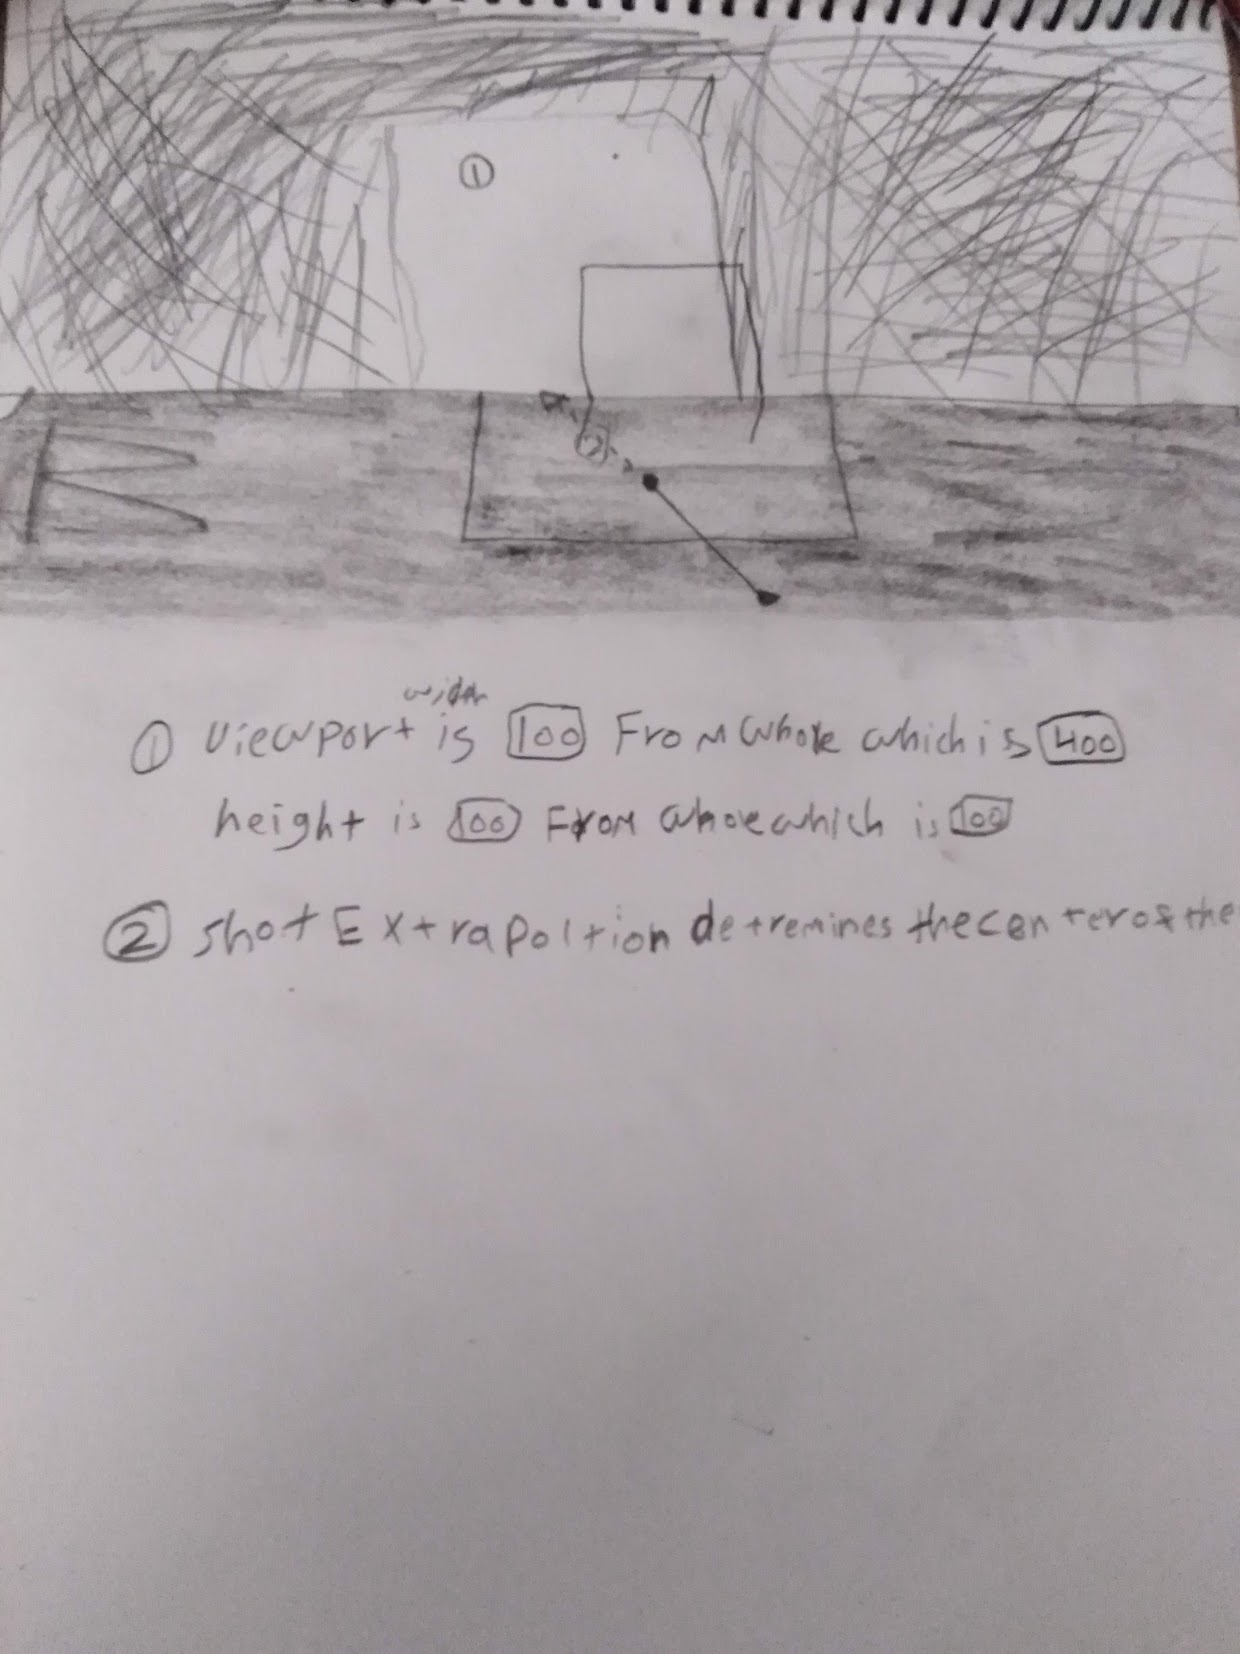 ①
②
① viewport width is 100 From whole which is 400
height is 100 From whole which is 100
② shot Extrapoltion detremines the center of the